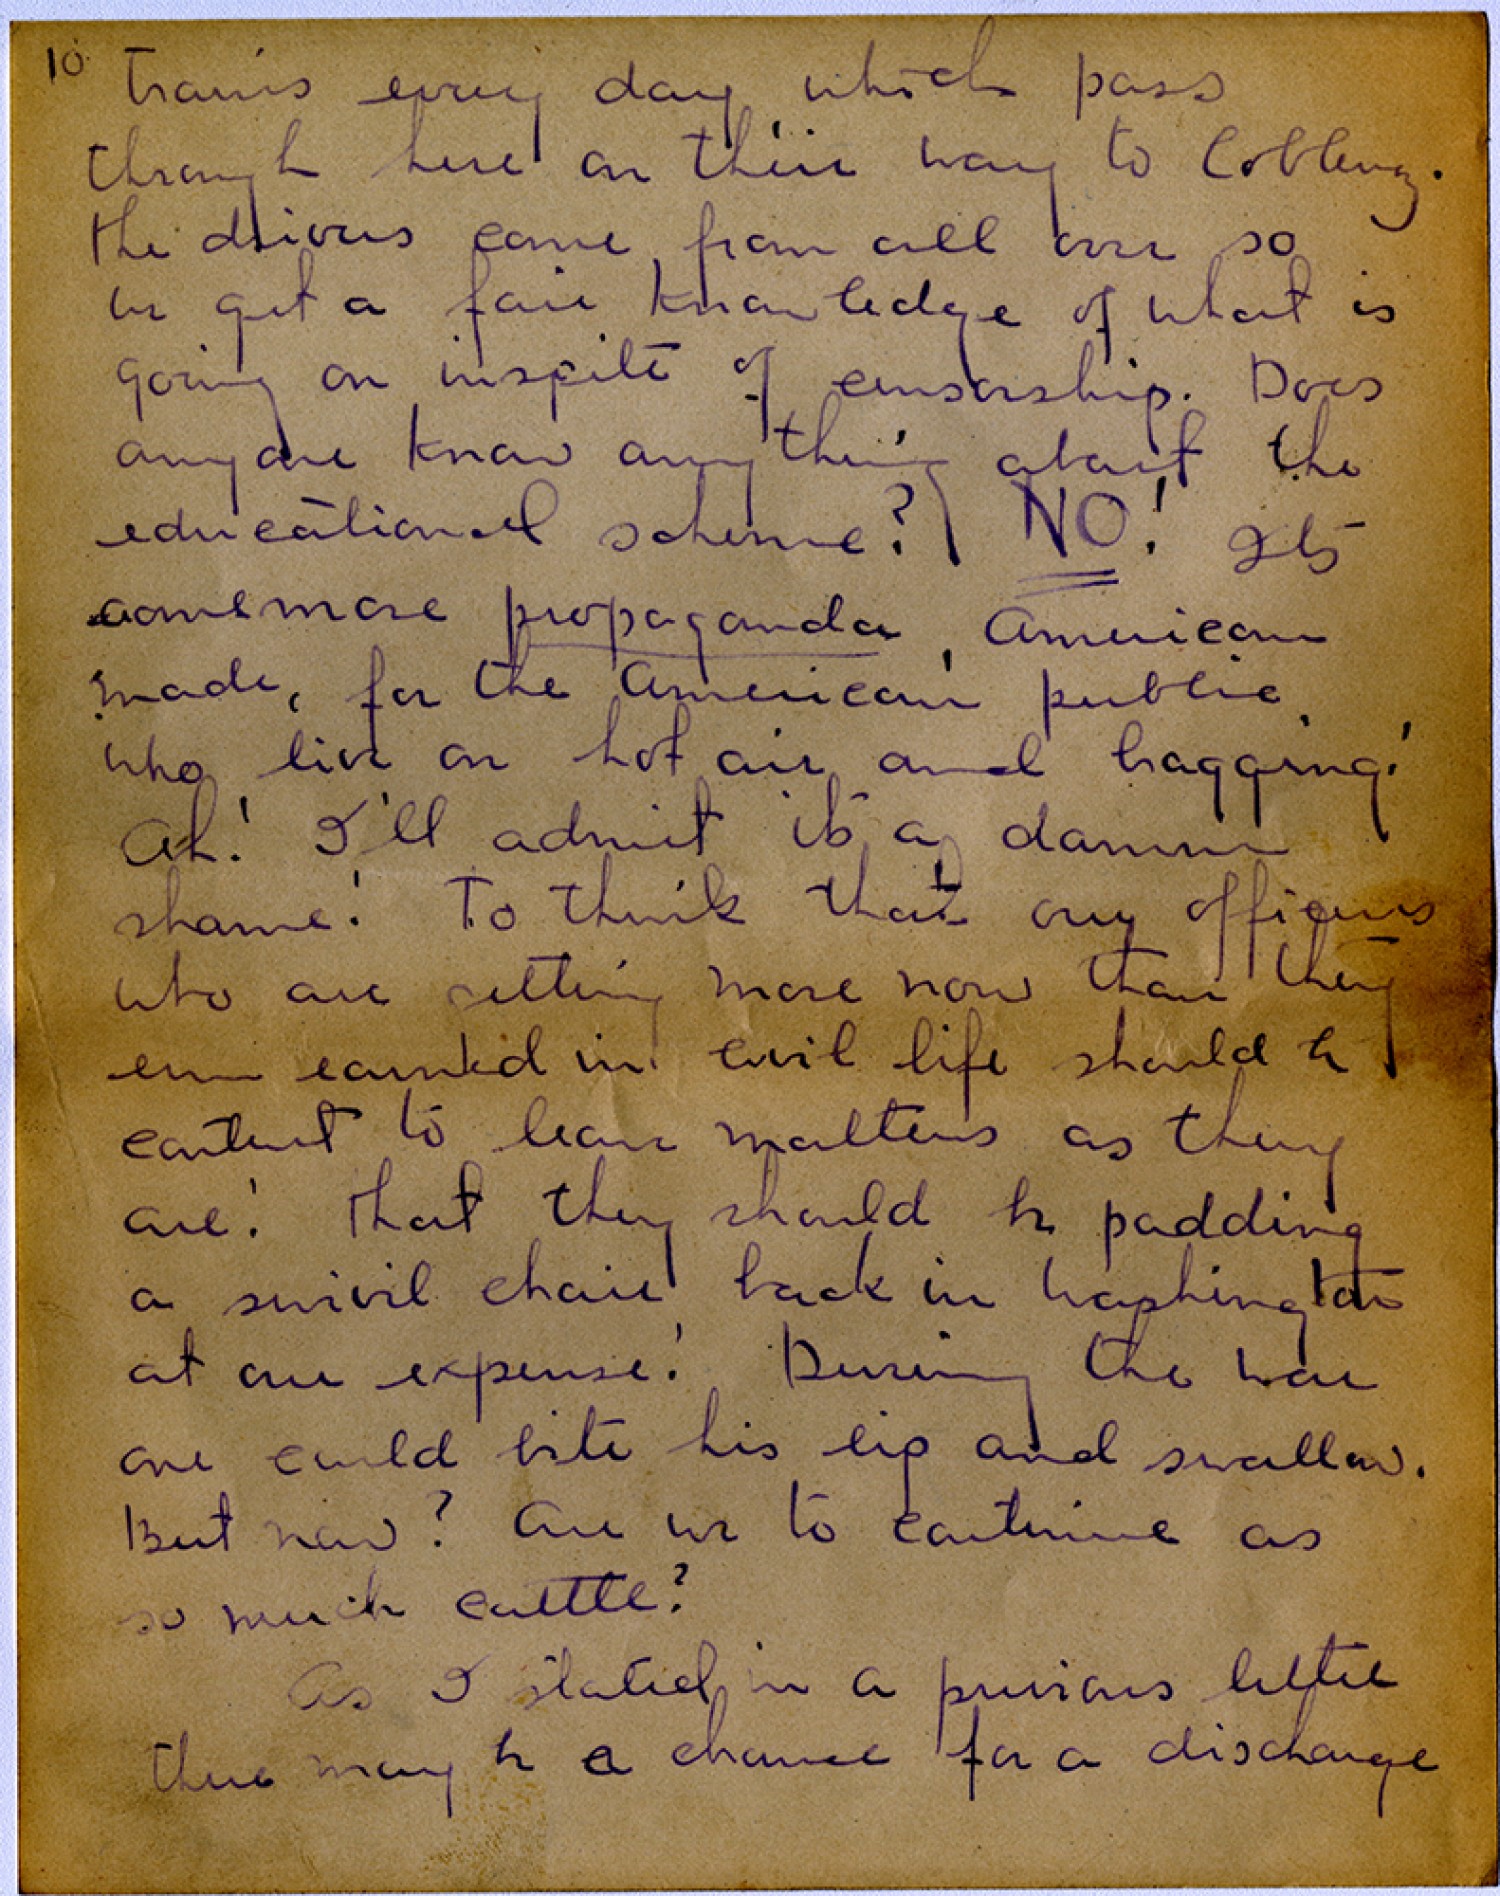 10
trains every day which pass
through here on their way to Coblenz.
The drivers come from all over so
we get a fair knowledge of what is
going on inspite of censorship. Does
anyone know anything about the
educational scheme? NO! Its
some more propaganda, American
made, for the American public,
who live on hot air and bragging!
Ah! I'll admit its a damn
shame! To think that our officers
who are getting more now than they
ever earned in civil life should be
content to leave matters as they
are! That they should be padding
a swivil chair back in Washington
at our expense! During the war
one could bite his lip and swallow.
But now? Are we to continue as
so much cattle?
As I stated in a previous letter
there may be a chance for a discharge